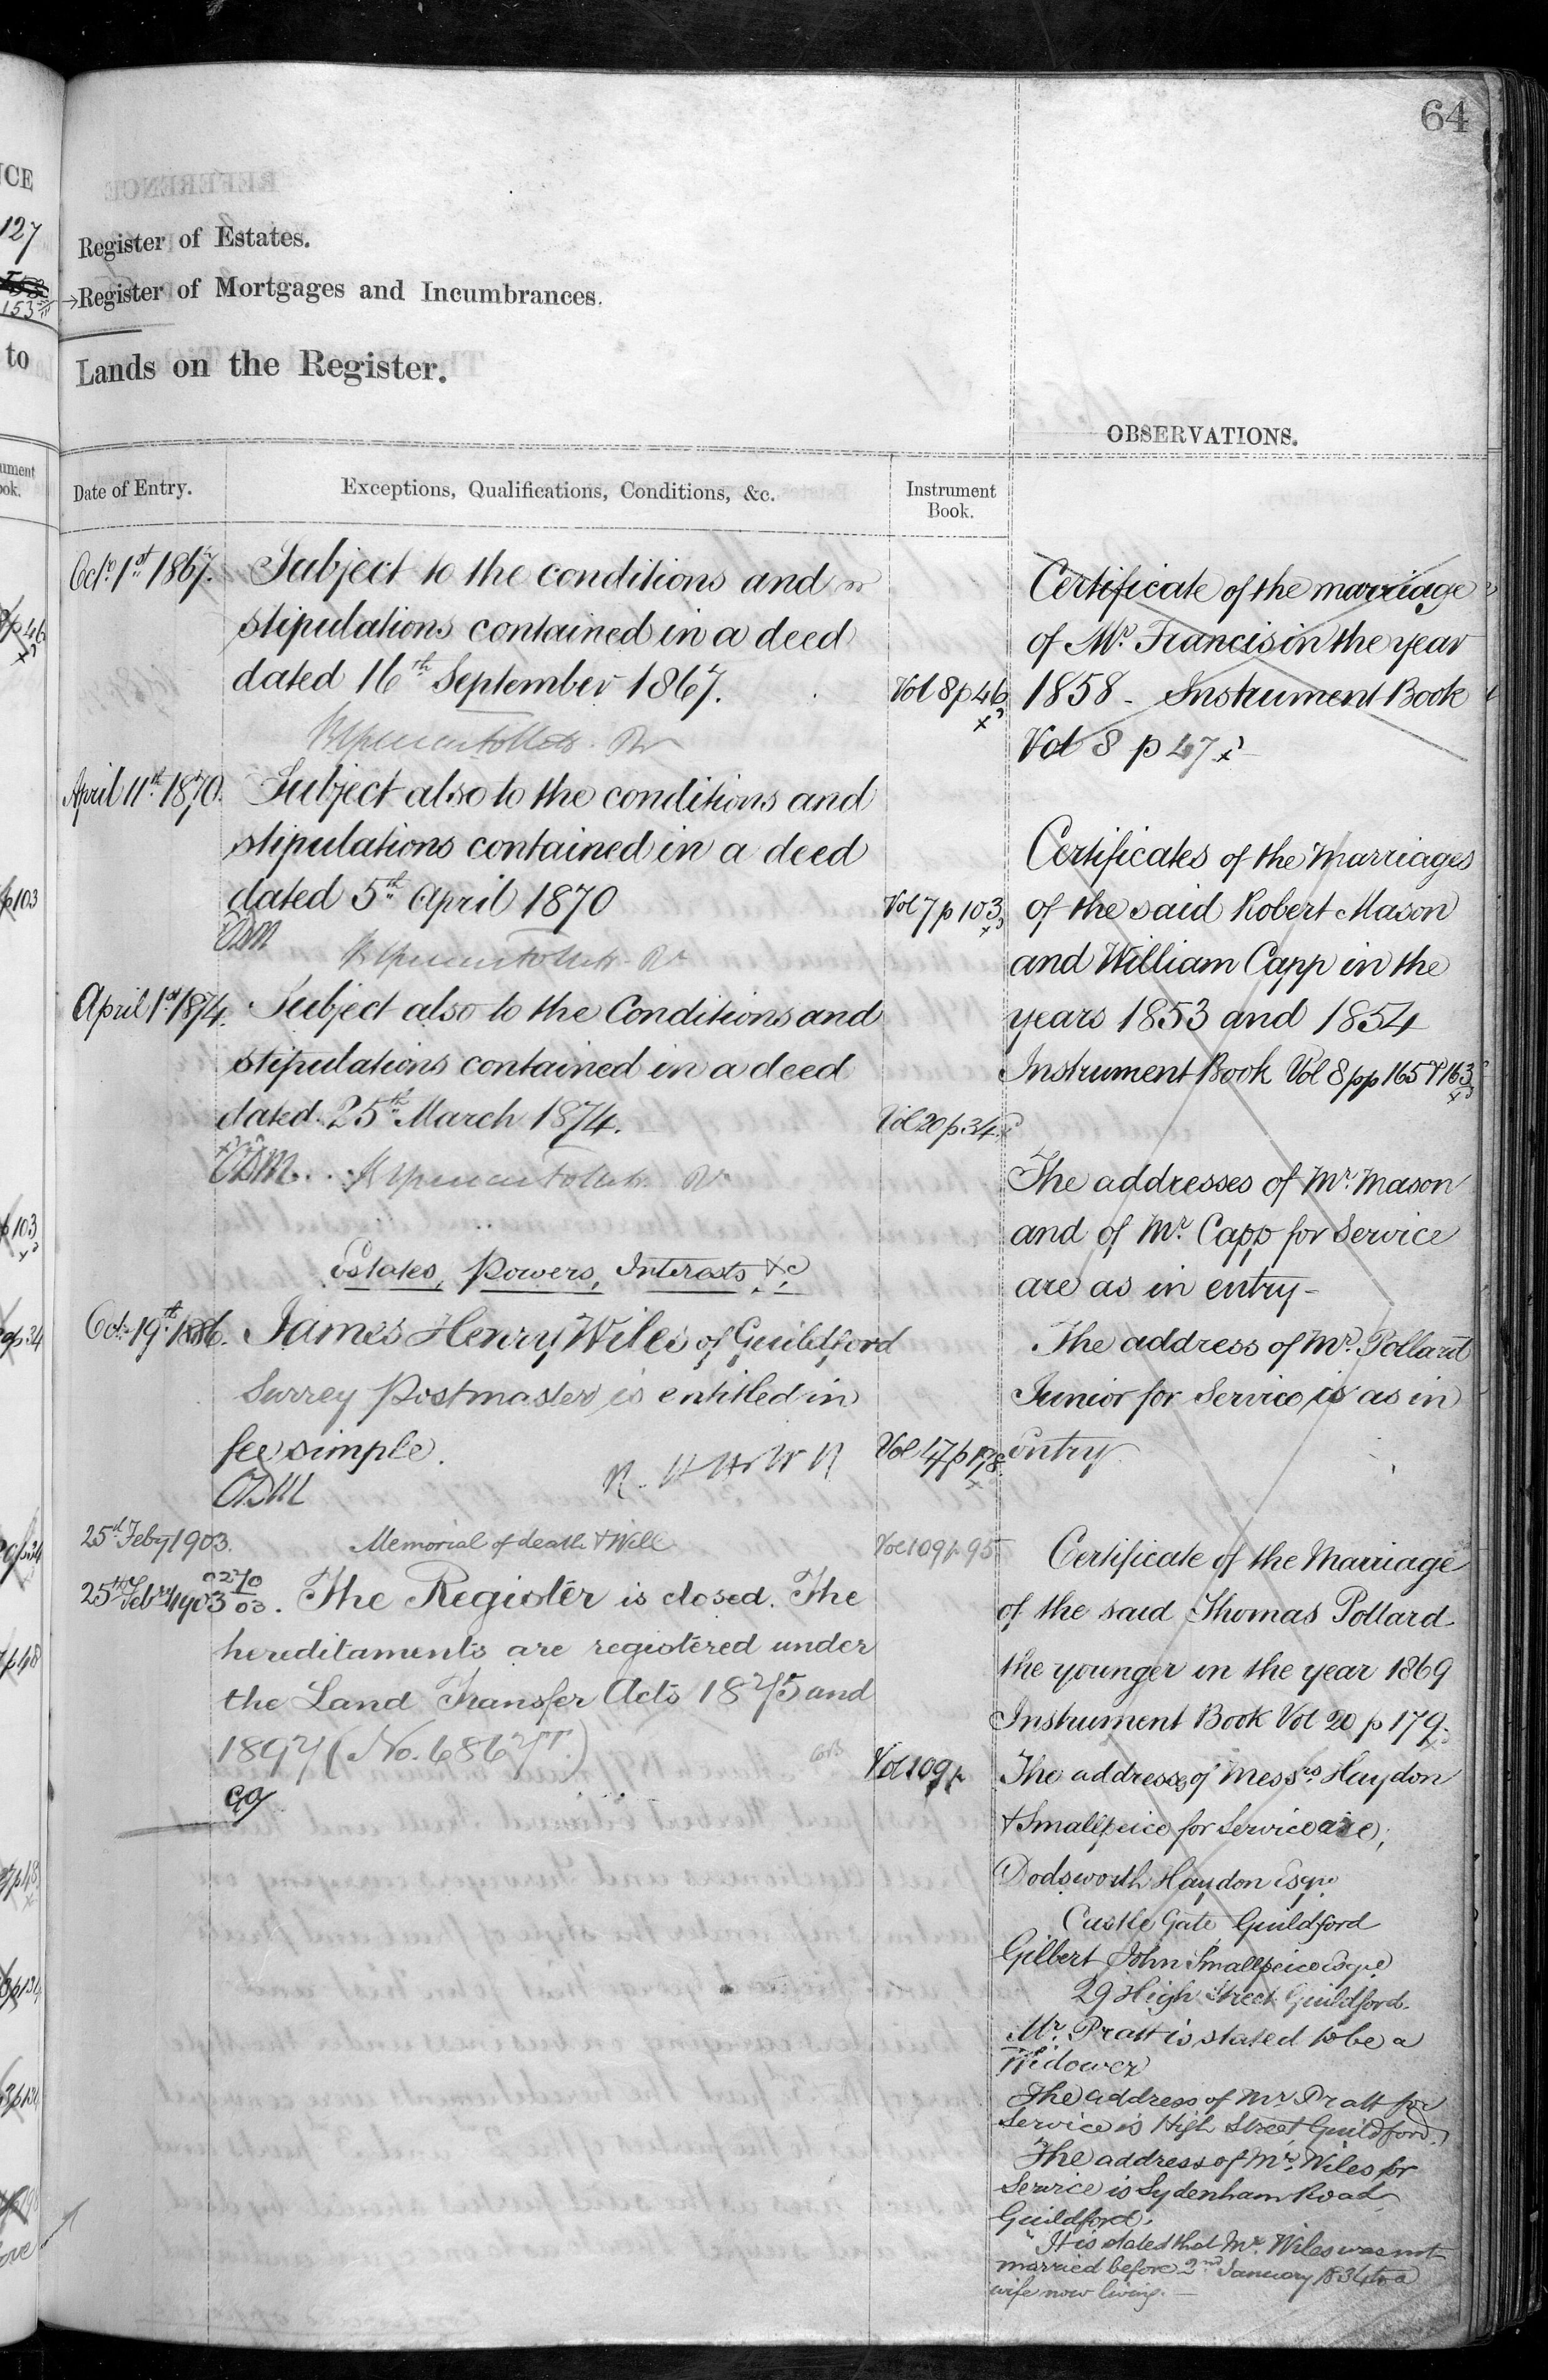 64
Register of Estates.
→Register of Mortgages and Incumbrances.
Lands on the Register.
OBSERVATIONS.
Date of Entry.
Exceptions, Qualifications, Conditions, &c.
Instrument
Book.
Octr. 1st 1867. Subject to the conditions and
stipulations contained in a deed
dated 16th September 1867. Vol 8 p 46
April 11th 1870. Subject also to the conditions and
stipulations contained in a deed
dated 5th April 1870 Vol 7 p 103
April 1st 1874. Subject also to the Conditions and
stipulations contained in a deed
dated 25th March 1874. Vol 20 p. 34
Estates, Powers, Interests, &c
Oct. 19th 1886. James Henry Wiles of Guildford
Surrey Postmaster is entitled in
fee simple. Vol 47 p 198
25th Feby 1903. Memorial of death & Will Vol 109 p. 95
25th Feby 1903 0270/03. The Register is closed. The
hereditaments are registered under
the Land Transfer Acts 1875 and
1897 (No. 6867T.) Vol 109 p
Certificate of the marriage
of Mr. Francis in the year
1858 - Instrument Book
Vol 8 p 47
Certificates of the Marriages
of the said Robert Mason
and William Capp in the
years 1853 and 1854
Instrument Book Vol 8 pp 165 & 163
The addresses of Mr. Mason
and of Mr. Capp for Service
are as in entry -
The address of Mr. Pollard
Junior for Service is as in
entry
Certificate of the Marriage
of the said Thomas Pollard
the younger in the year 1869
Instrument Book Vol 20 p 179.
The address of Messrs. Haydon
& Smallpeice for Service are;
Dodsworth Haydon Esqre
Castle Gate, Guildford
Gilbert John Smallpeice Esqre
29 High Street Guildford.
Mr. Pratt is stated to be a
Widower
The address of Mr Pratt for
Service is High Street Guildford.
The address of Mr. Wiles for
Service is Sydenham Road,
Guildford.
It is stated that Mr. Wiles was not
married before 2nd January 1834 to a
wife now living. -